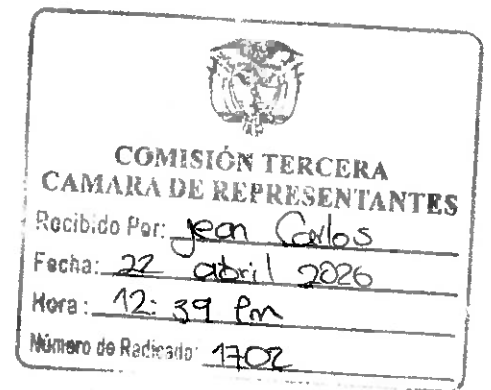 COMISIÓN TERCERA
CAMARA DE REPRESENTANTES
Recibido Por: Jean Carlos
Fecha: 22 abril 2026
Hora: 12:39 Pm
Número de Radicado: 1702